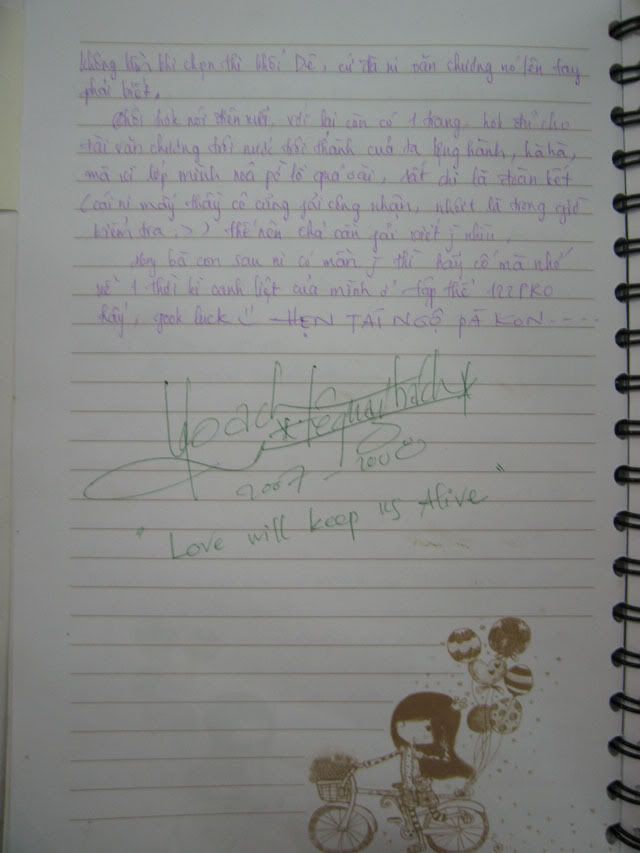 không hỉu khi chọn thi khối Dê, cứ đà ni văn chương nó lên tay
phải biết.
Thôi hok nói thêm nữa, với lại còn có 1 trang, hok đủ cho
tài văn chương đổi nước đổi thành của ta lộng hành, hàhà,
mà ui lớp mình mà, đoàn kết
(cái ni mấy thầy cô cũng fải công nhận, nhứt là trong giờ
kiểm tra :>) thế nên chả cần fải viết j nhìu,
Mong bà con sau ni có mần j thì hãy cố mà nhớ
về 1 thời kì oanh liệt của mình ở tập thể 122PRO
hấy, gook luck HẸN TÁI NGỘ PÀ KON....
2007 - 2008
"Love will keep us Alive"